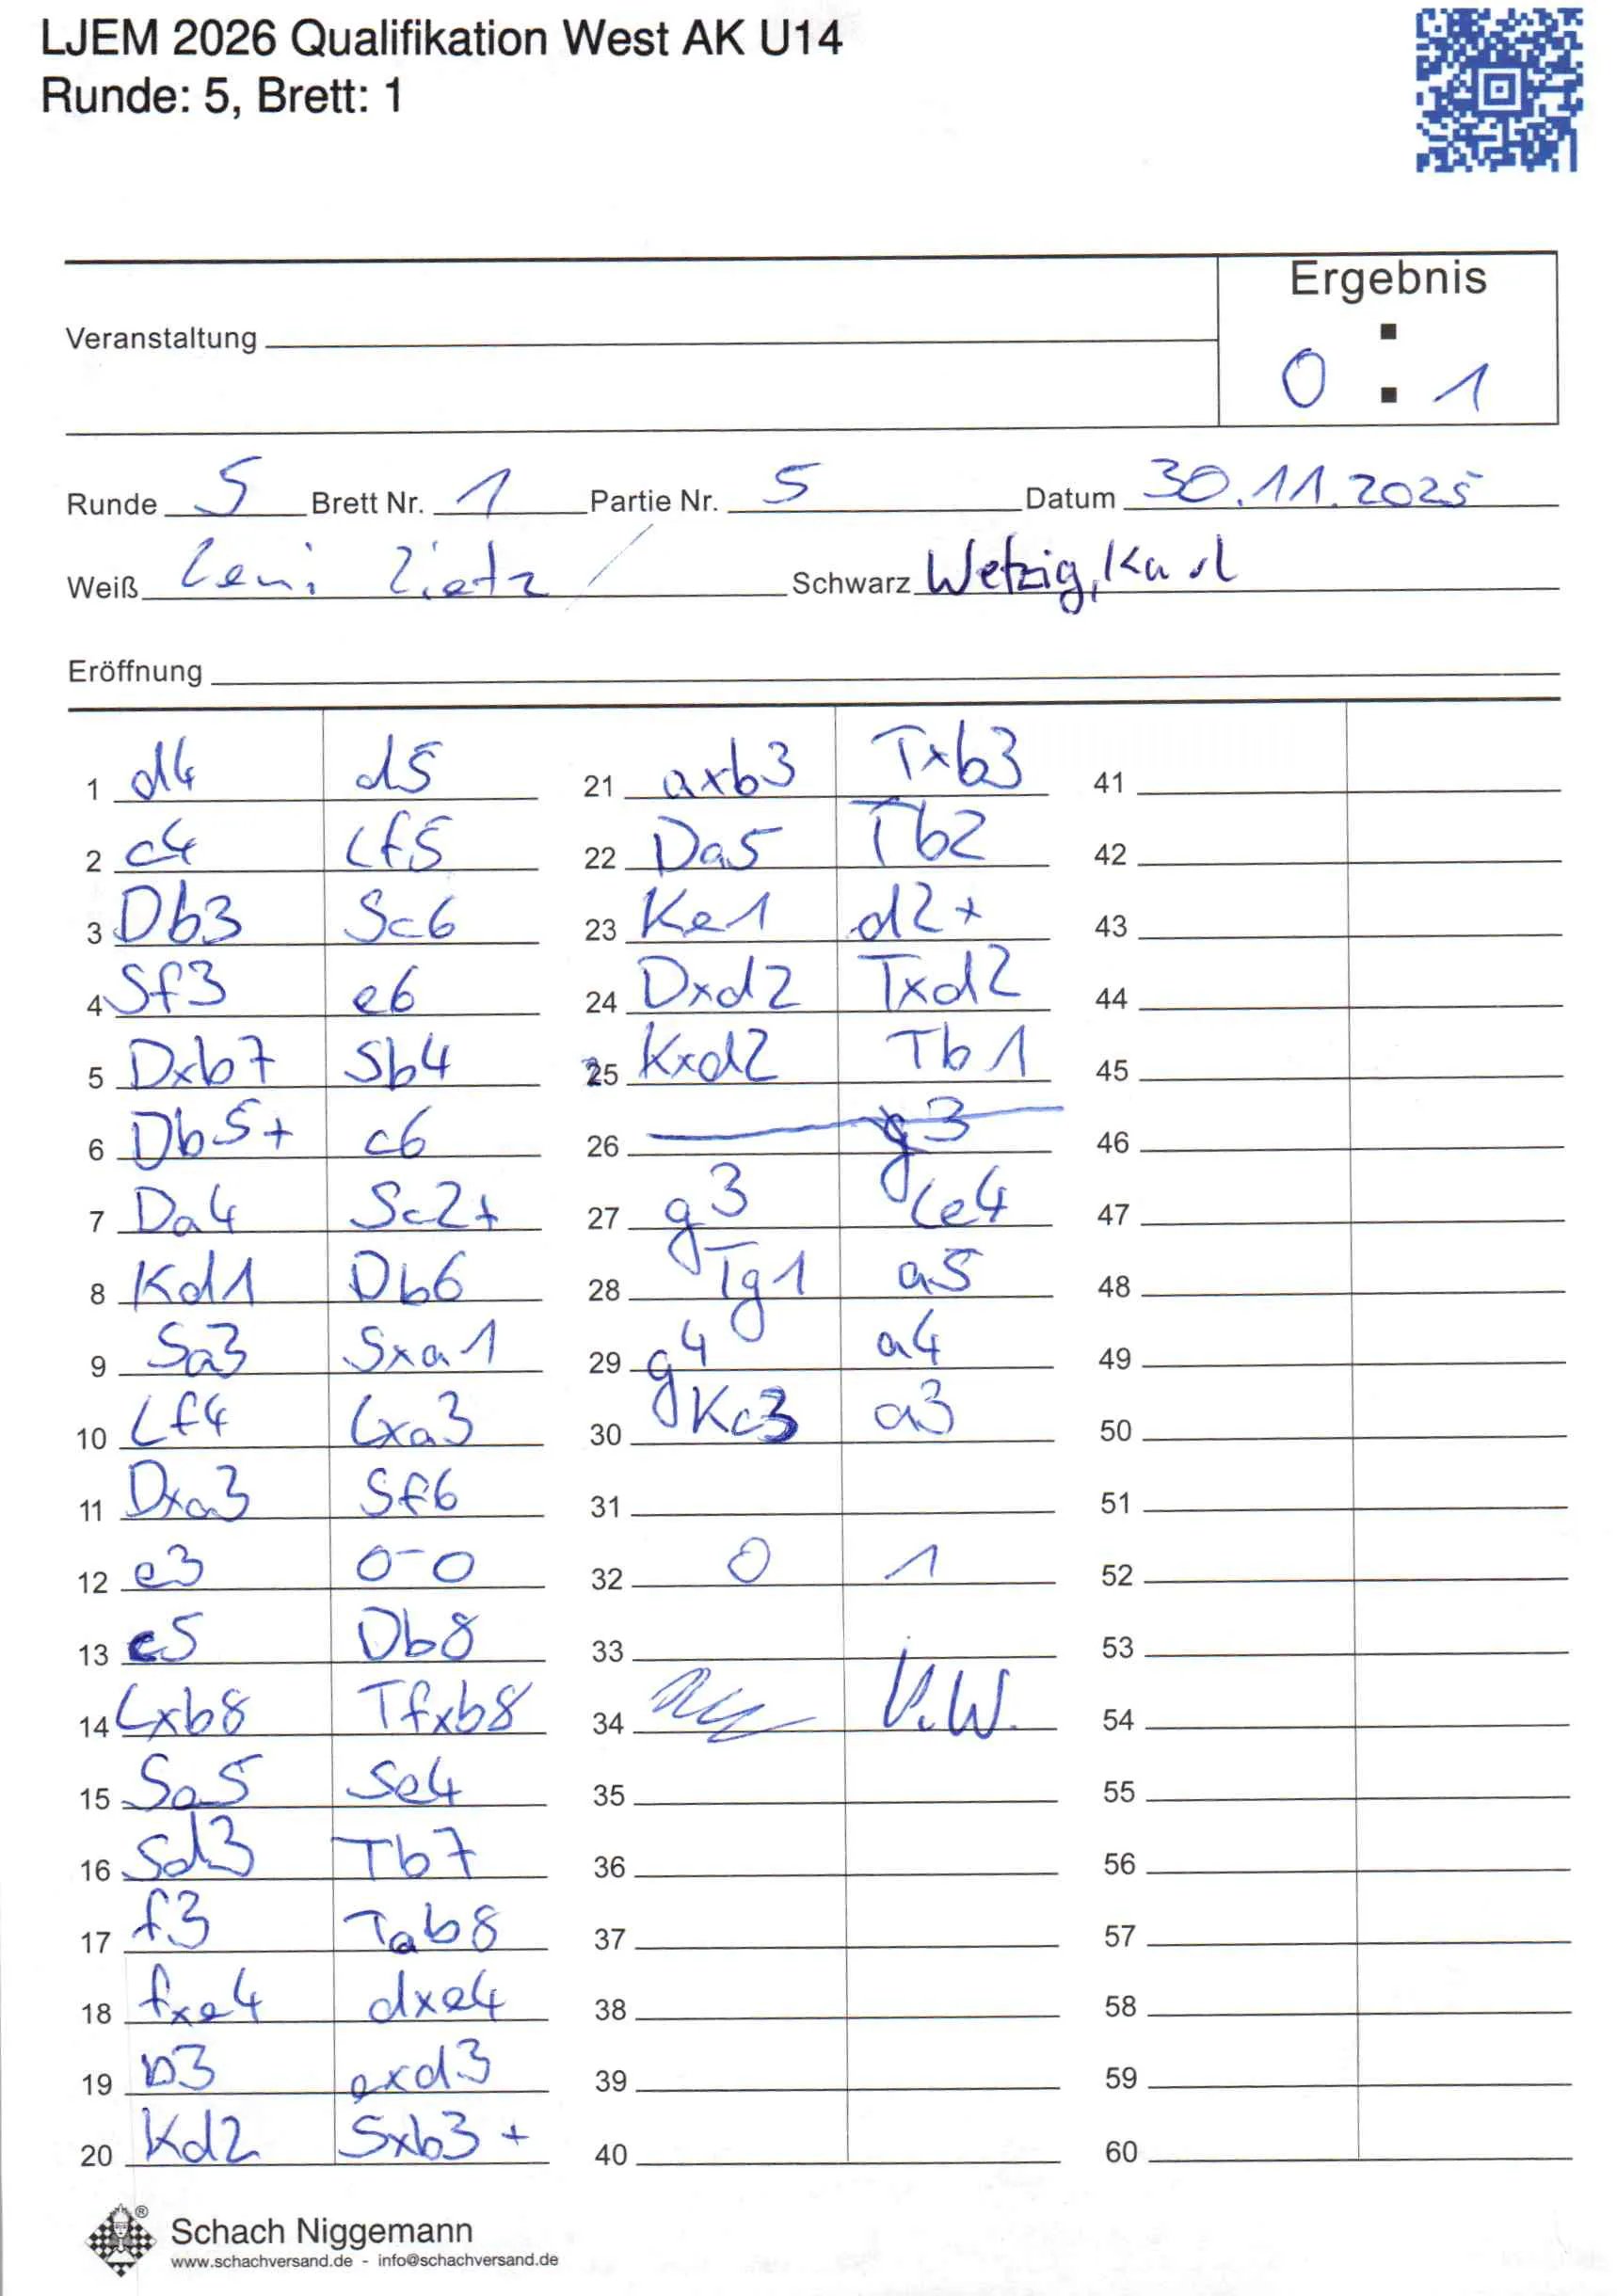 LJEM 2026 Qualifikation West AK U14
Runde: 5, Brett: 1
Ergebnis
Veranstaltung
0 : 1
Runde 5 Brett Nr. 1 Partie Nr. 5 Datum 30.11.2025
Weiß Leni Zietz Schwarz Wetzig, Karl
Eröffnung
1 d4 d5 21 axb3 Txb3 41
2 c4 Lf5 22 Da5 Tb2 42
3 Db3 Sc6 23 Ke1 d2+ 43
4 Sf3 e6 24 Dxd2 Txd2 44
5 Dxb7 Sb4 25 Kxd2 Tb1 45
6 Db5+ c6 26 g3 46
7 Da4 Sc2+ 27 g3 Le4 47
8 Kd1 Db6 28 Tg1 a5 48
9 Sa3 Sxa1 29 g4 a4 49
10 Lf4 Lxa3 30 Kc3 a3 50
11 Dxa3 Sf6 31 51
12 e3 0-0 32 0 1 52
13 c5 Db8 33 53
14 Lxb8 Tfxb8 34 K.W. 54
15 Sa5 Se4 35 55
16 Sd3 Tb7 36 56
17 f3 Tab8 37 57
18 fxe4 dxe4 38 58
19 b3 exd3 39 59
20 Kd2 Sxb3+ 40 60
Schach Niggemann
www.schachversand.de - info@schachversand.de